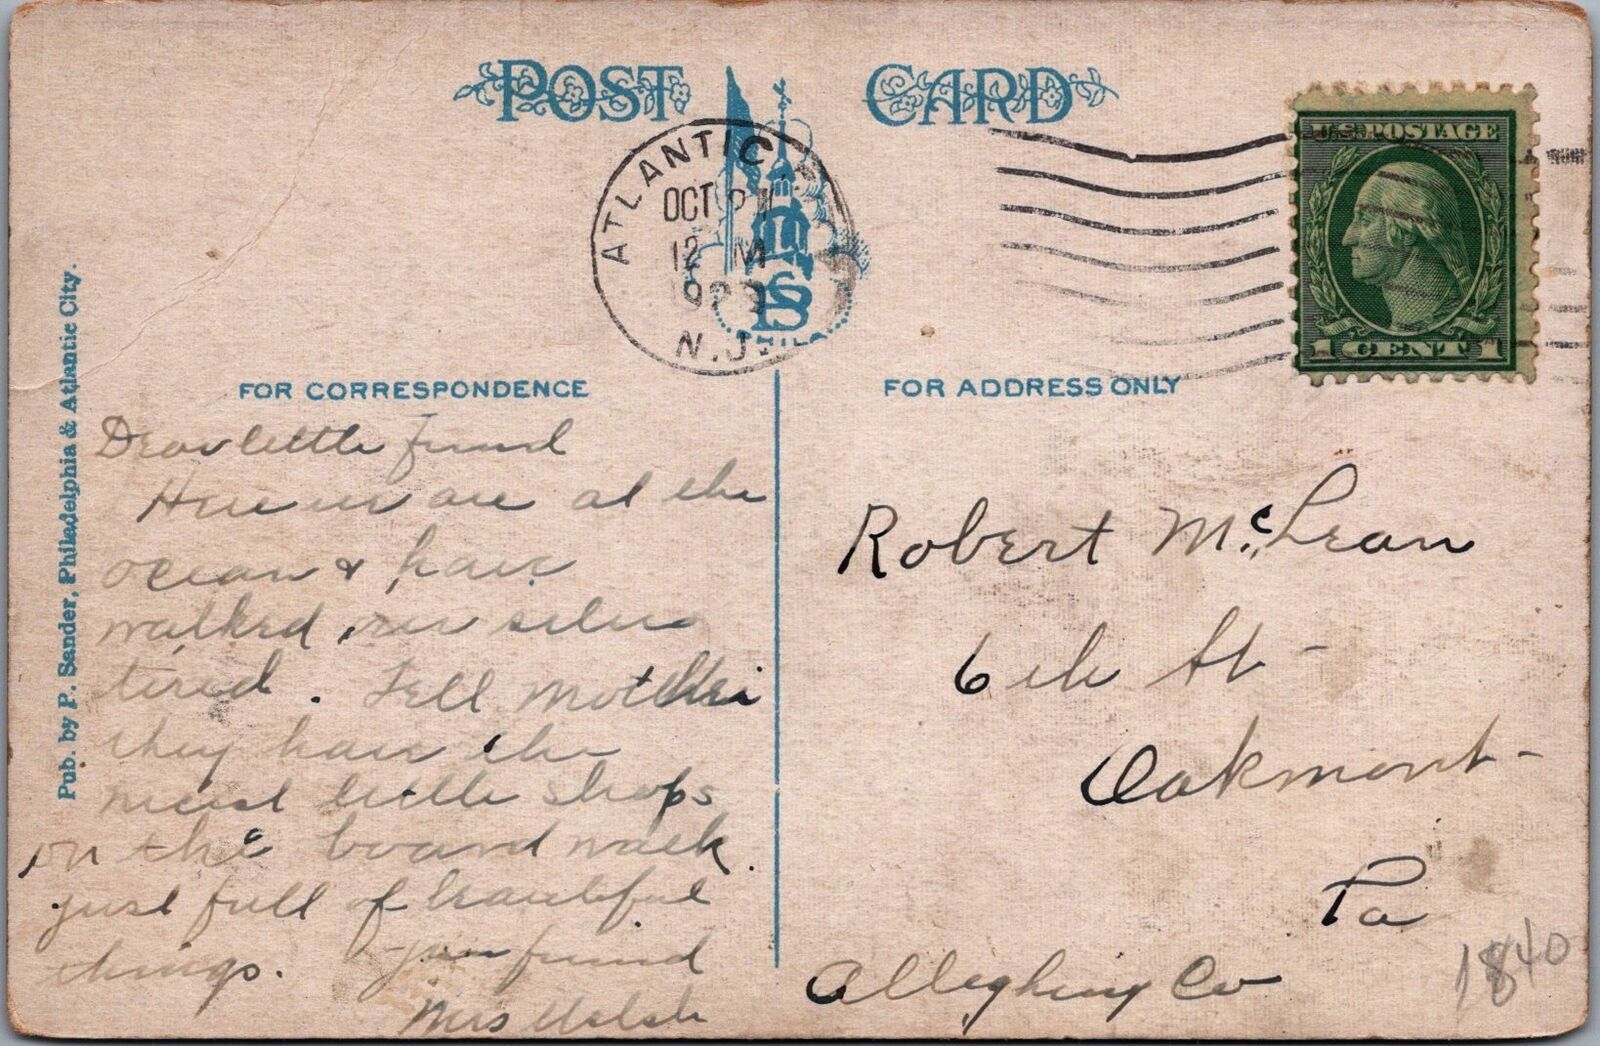 POST CARD
U.S. POSTAGE
1 CENT 1
ATLANTIC
OCT
12 M
N.J.
PS
PHILA
FOR CORRESPONDENCE
FOR ADDRESS ONLY
Pub. by P. Sander, Philadelphia & Atlantic City.
Dear little friend
Here we are at the
ocean & have
walked our selves
tired. Tell Mother
they have the
nicest little shops
on the board walk.
just full of beautiful
things. your friend
Mrs
Robert McLean
6th St-
Oakmont-
Pa
Allegheny Co
1840